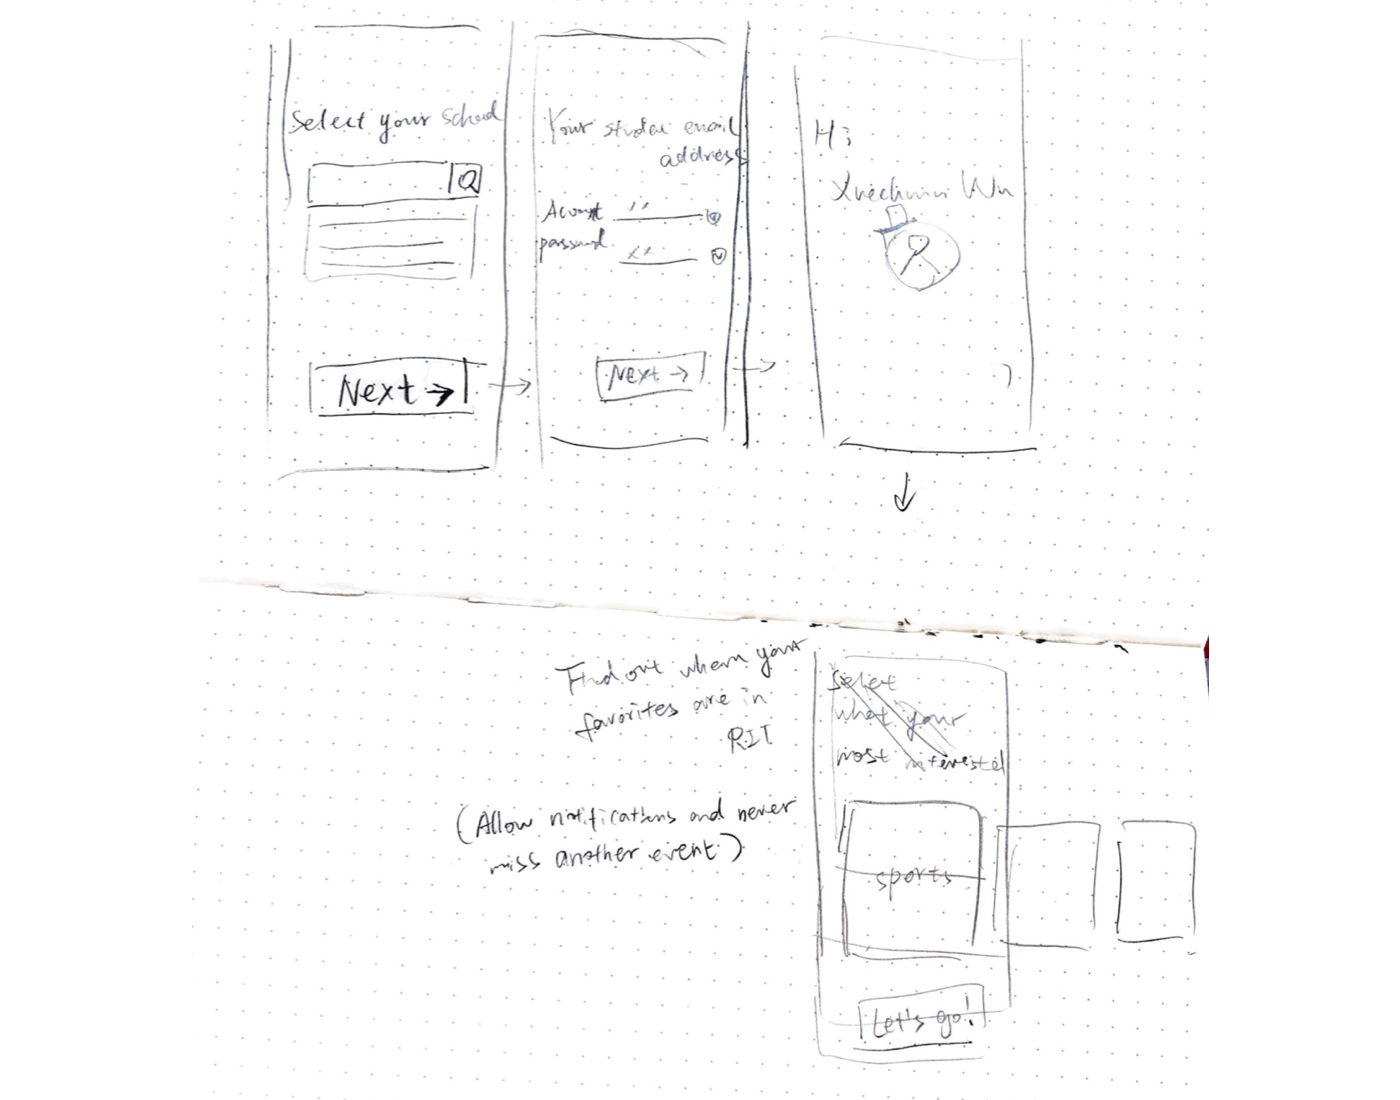 Select your school
Next →
Your student email
address
Account
password
xx
Next →
Hi
Wu
Find out when your
favorites are in
RIT
(Allow notifications and never
miss another event)
Select
what your
most interested
sports
Let's go!